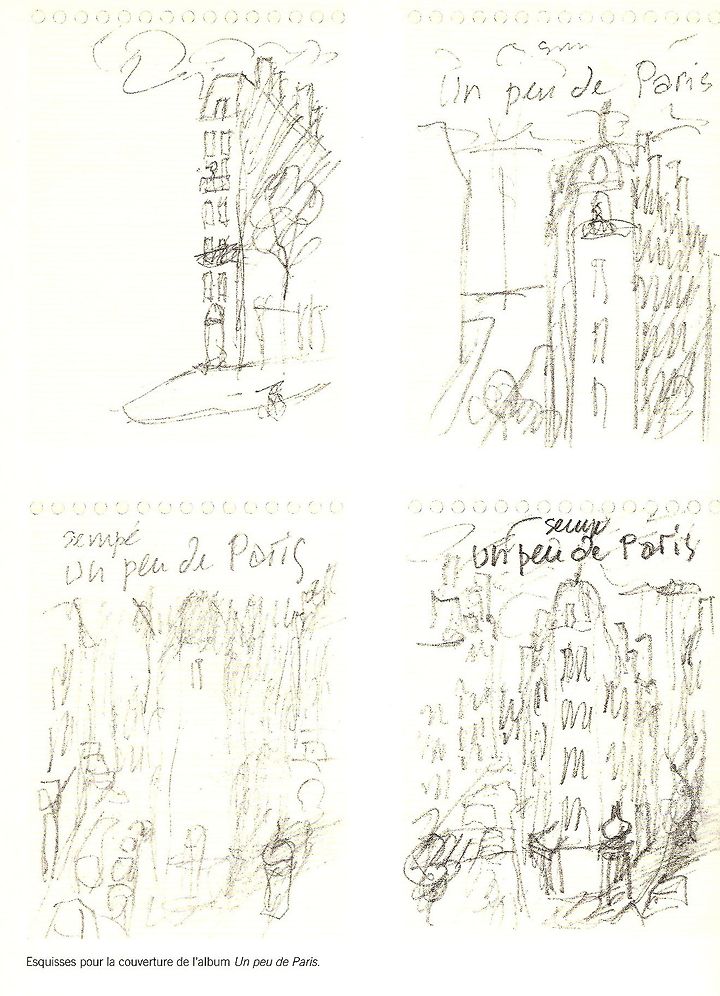 Un peu de Paris
sempé
un peu de Paris
sempé
un peu de Paris
Esquisses pour la couverture de l'album Un peu de Paris.